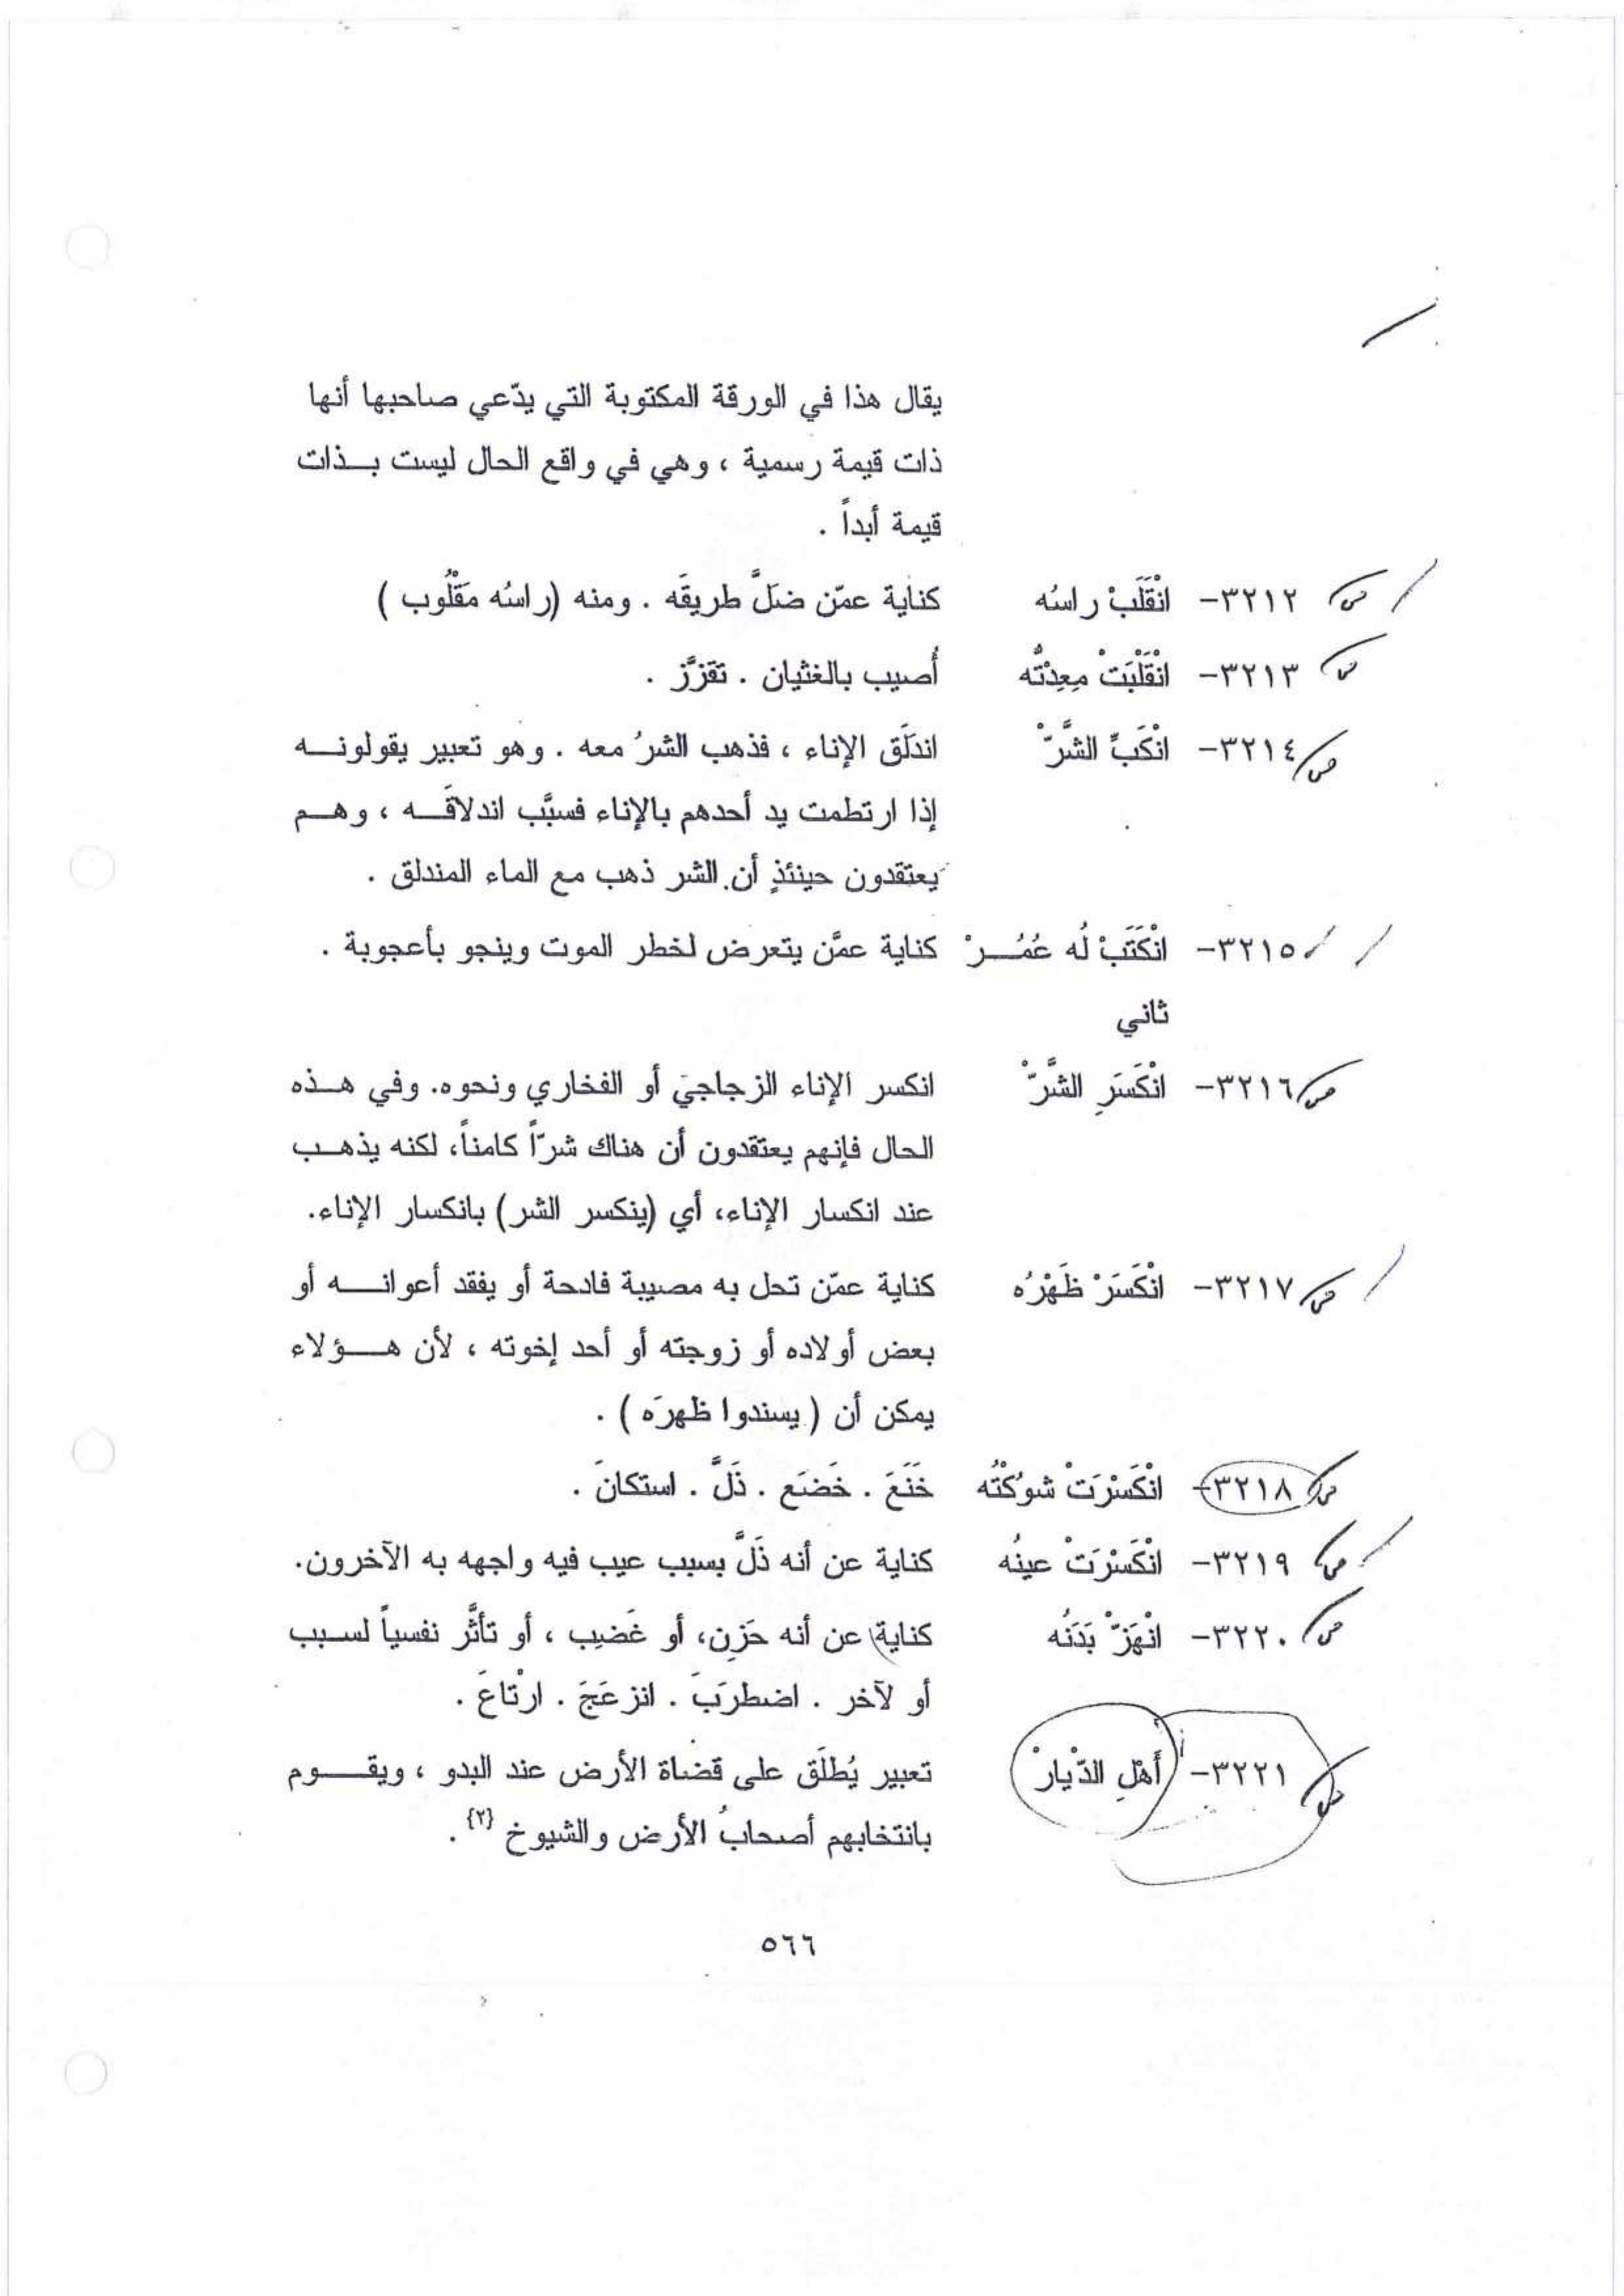 يقال هذا في الورقة المكتوبة التي يدّعي صاحبها أنها
ذات قيمة رسمية ، وهي في واقع الحال ليست بـذات
قيمة أبداً .
٣٢١٢- انْقَلَبْ راسُه كناية عمّن ضلَّ طريقَه . ومنه (راسُه مَقْلُوب )
٣٢١٣- انْقَلْبَتْ مِعِدْتُه أُصيب بالغثيان . تقزَّز .
٣٢١٤- انْكَبِّ الشَّرّْ اندلَق الإناء ، فذهب الشرُ معه . وهو تعبير يقولونـه
إذا ارتطمت يد أحدهم بالإناء فسبَّب اندلاقَـه ، وهـم
يعتقدون حينئذٍ أن الشر ذهب مع الماء المندلق .
٣٢١٥- انْكَتَبْ لُه عُمُـرْ كناية عمَّن يتعرض لخطر الموت وينجو بأعجوبة .
ثاني
٣٢١٦- انْكَسَرِ الشَّرّْ انكسر الإناء الزجاجيَ أو الفخاري ونحوه. وفي هـذه
الحال فإنهم يعتقدون أن هناك شرّاً كامناً، لكنه يذهـب
عند انكسار الإناء، أي (ينكسر الشر) بانكسار الإناء.
٣٢١٧- انْكَسَرْ ظَهْرُه كناية عمّن تحل به مصيبة فادحة أو يفقد أعوانـه أو
بعض أولاده أو زوجته أو أحد إخوته ، لأن هـؤلاء
يمكن أن ( يسندوا ظهرَه ) .
٣٢١٨- انْكَسْرَتْ شوُكْتُه خَنَعَ . خَضَع . ذَلَّ . استكانَ .
٣٢١٩- انْكَسْرَتْ عينُه كناية عن أنه ذَلَّ بسبب عيب فيه واجهه به الآخرون.
٣٢٢٠- انْهَزّْ بَدَنُه كناية عن أنه حَزِن، أو غَضِب ، أو تأثَّر نفسياً لسبب
أو لآخر . اضطرَبَ . انزعَجَ . ارْتاعَ .
٣٢٢١- أَهْلِ الدّْيارْ تعبير يُطلَق على قضاة الأرض عند البدو ، ويقـوم
بانتخابهم أصحابُ الأرض والشيوخ {٢} .
٥٦٦